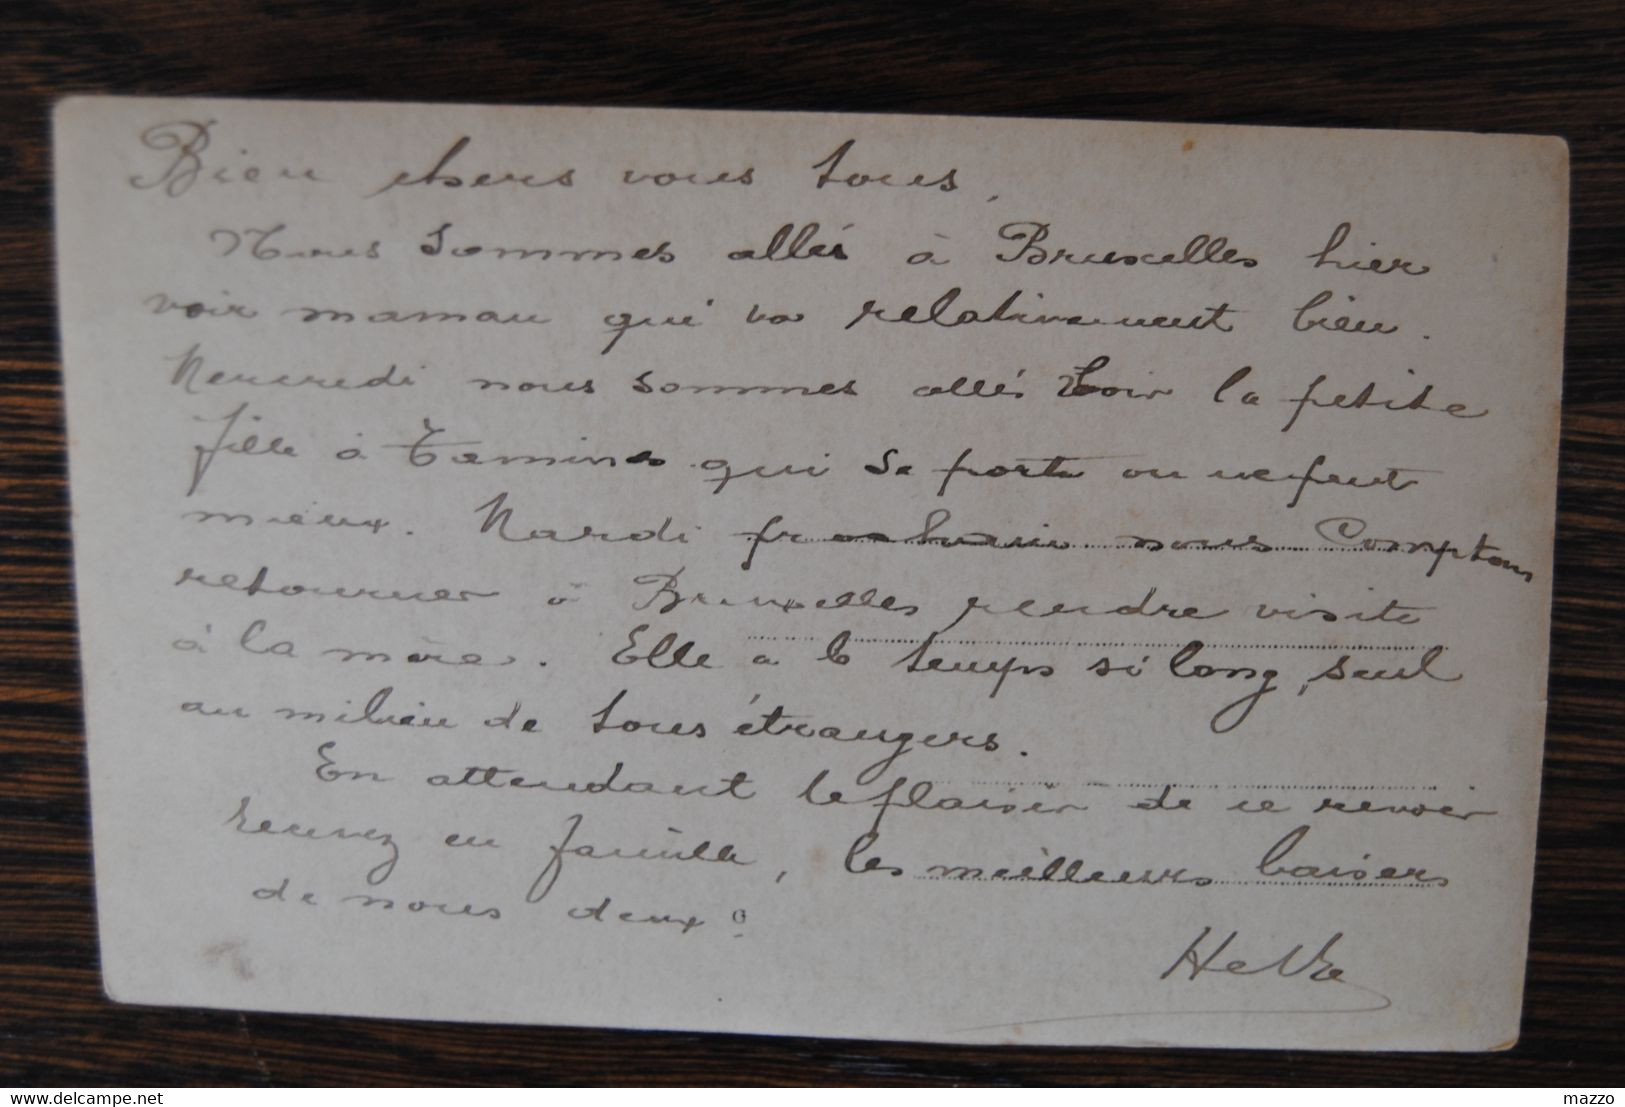 Bien chers vous tous,
Nous sommes allés à Bruxelles hier
voir maman qui va relativement bien.
Mercredi nous sommes allés voir la petite
fille à Tamines qui se porte on ne peut
mieux. Mardi prochain nous comptons
retourner à Bruxelles rendre visite
à la mère. Elle a le temps si long, seul
au milieu de tous étrangers.
En attendant le plaisir de se revoir
recevez en famille, les meilleurs baisers
de nous deux.
delcampe.net
mazzo